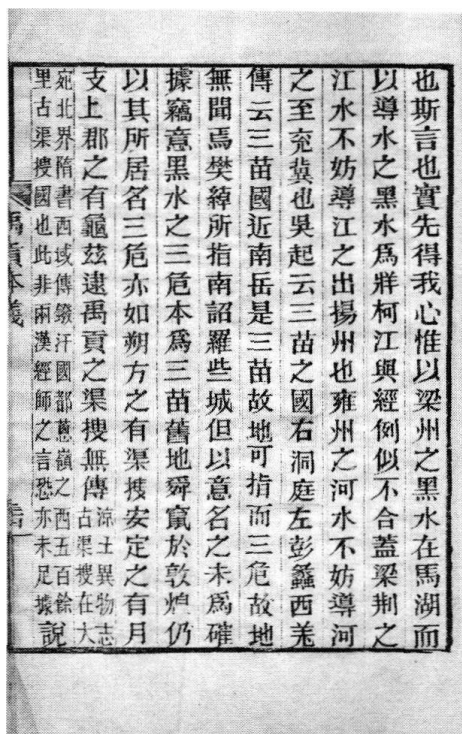 也斯言也實先得我心惟以梁州之黑水在馬湖而
以導水之黑水爲牂柯江與經例似不合蓋梁荆之
江水不妨導江之出揚州也雍州之河水不妨導河
之至兖冀也吳起云三苗之國右洞庭左彭蠡西羌
傳云三苗國近南岳是三苗故地可指而三危故地
無聞焉樊綽所指南詔羅些城但以意名之未爲確
據竊意黑水之三危本爲三苗舊地舜竄於敦煌仍
以其所居名三危亦如朔方之有渠搜安定之有月
支上郡之有龜玆逮禹貢之渠搜無傳
涼土異物志
古渠搜在大
宛北界隋書西域傳鏺汗國都蔥嶺之西五百餘
里古渠搜國也此非兩漢經師之言恐亦未足據
說
禹貢本義